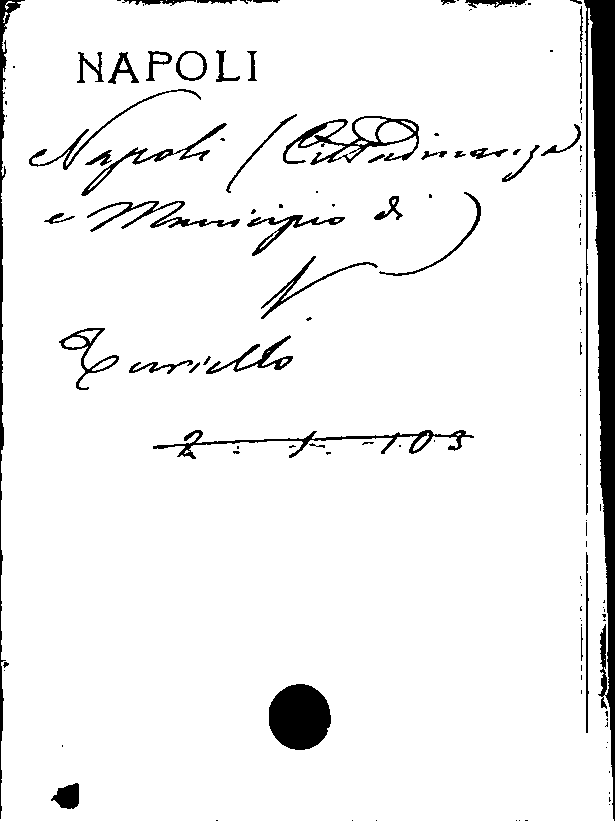 NAPOLI
Napoli (Cittadinanza
e Municipio di
N.)
Turiello
2 . 1 . 103